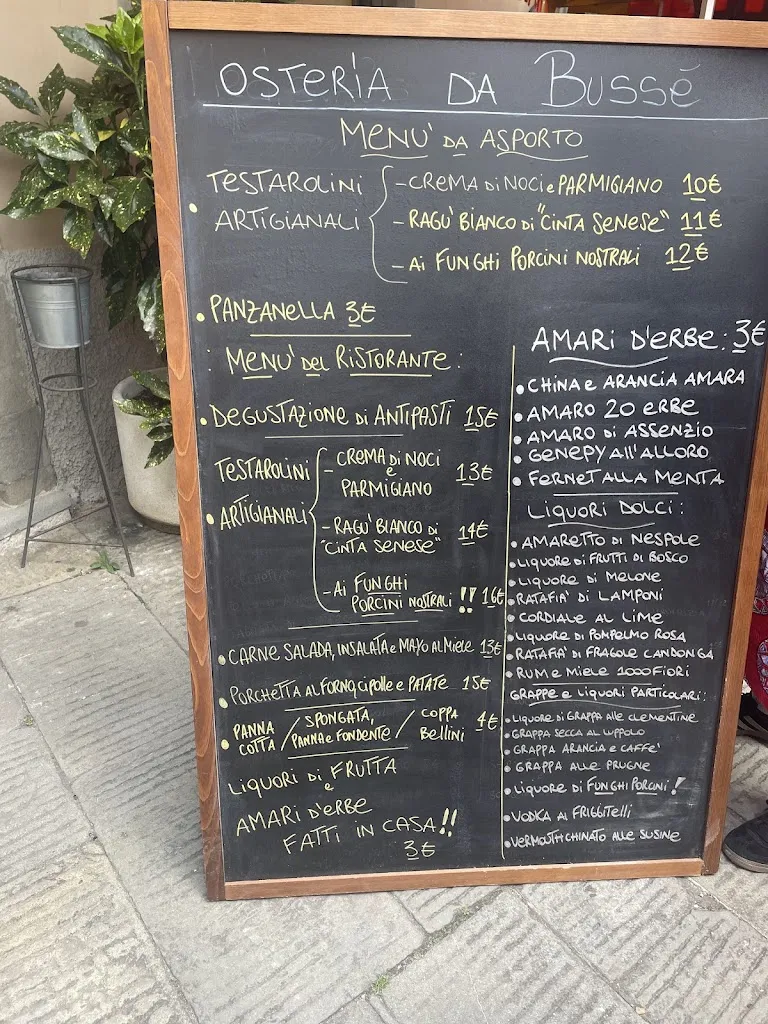 OSTERIA DA BUSSÉ
MENU' DA ASPORTO
TESTAROLINI
ARTIGIANALI
- CREMA DI NOCI e PARMIGIANO 10€
- RAGU' BIANCO DI "CINTA SENESE" 11€
- Ai FUNGHI PORCINI NOSTRALI 12€
• PANZANELLA 3€
: MENU' DEL RISTORANTE :
• DEGUSTAZIONE DI ANTIPASTI 15€
TESTAROLINI
• ARTIGIANALI
- CREMA DI NOCI
e
PARMIGIANO
13€
- RAGU' BIANCO DI
"CINTA SENESE"
14€
- Ai FUNGHI
PORCINI NOSTRALI !! 16€
• CARNE SALADA, INSALATA e MAYO AL MIELE 13€
• PORCHETTA AL FORNO, CIPOLLE e PATATE 15€
• PANNA
COTTA /
SPONGATA,
PANNA e FONDENTE /
COPPA
BELLINI
4€
LIQUORI DI FRUTTA
e
AMARI D'ERBE
FATTI IN CASA!!
3€
AMARI D'ERBE: 3€
• CHINA e ARANCIA AMARA
• AMARO 20 ERBE
• AMARO DI ASSENZIO
• GENEPY All'ALLORO
• FERNET ALLA MENTA
LIQUORI DOLCI:
• AMARETTO DI NESPOLE
• LIQUORE DI FRUTTI DI BOSCO
• LIQUORE DI MELONE
• RATAFIA' DI LAMPONI
• CORDIALE AL LIME
• LIQUORE DI POMPELMO ROSA
• RATAFIA' DI FRAGOLE CANDONGA
• RUM e MIELE 1000 FIORI
GRAPPE e LIQUORI PARTICOLARI:
• LIQUORE DI GRAPPA ALLE CLEMENTINE
• GRAPPA SECCA AL LUPPOLO
• GRAPPA ARANCIA e CAFFE'
• GRAPPA ALLE PRUGNE
• LIQUORE DI FUNGHI PORCINI!
• VODKA AI FRIGGITELLI
• VERMOUTH CHINATO ALLE SUSINE